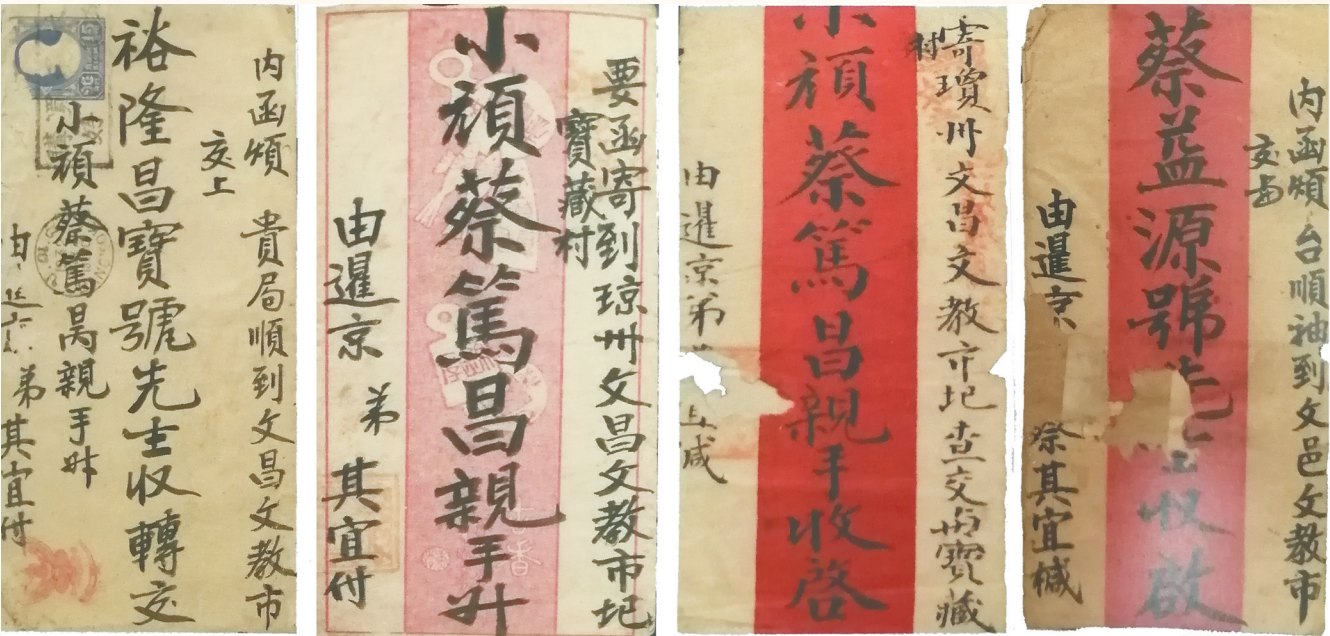 内函煩 貴局順到文昌文教市
交上
裕隆昌寶號先生收轉交
小頑蔡篤昌親手收
弟 其宜付
要函寄到琼州文昌文教市圯
寶藏村
小頑蔡篤昌親手升
由暹京 弟 其宜付
寄瓊州文昌文教市圯查交与寶藏
村
小頑蔡篤昌親手收啓
由暹京弟
内函煩台順袖到文邑文教市
交与
蔡益源號先生收啟
由暹京 蔡其宜椷